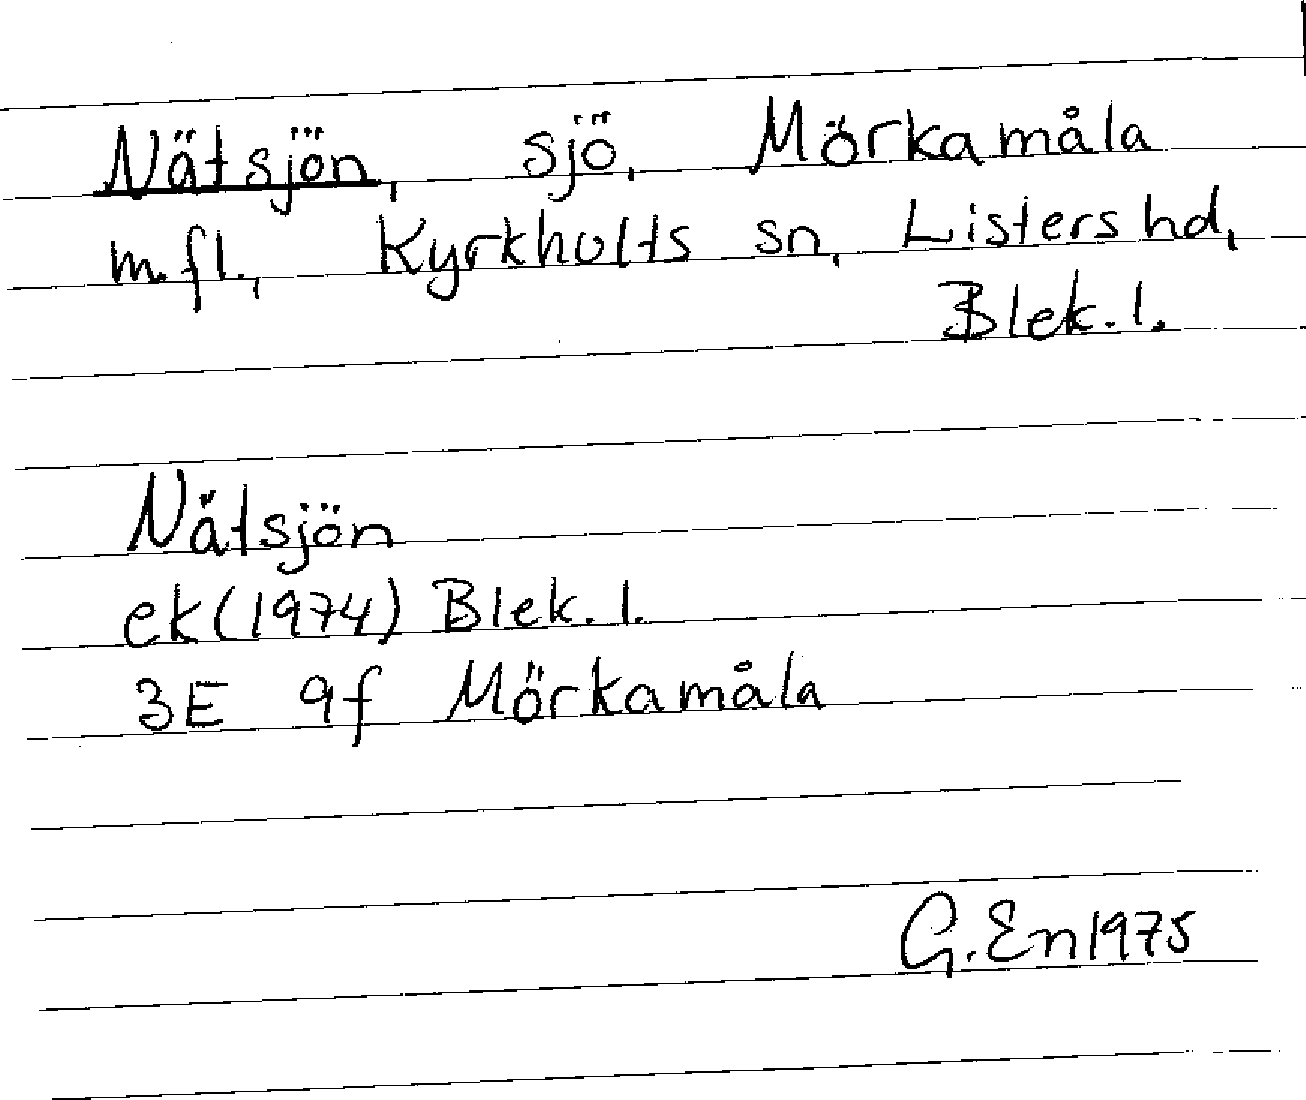 Nätsjön, sjö, Mörkamåla
m.fl., Kyrkhults sn, Listers hd,
Blek. l.
Nätsjön
ek (1974) Blek. l.
3E 9f Mörkamåla
G. En 1975